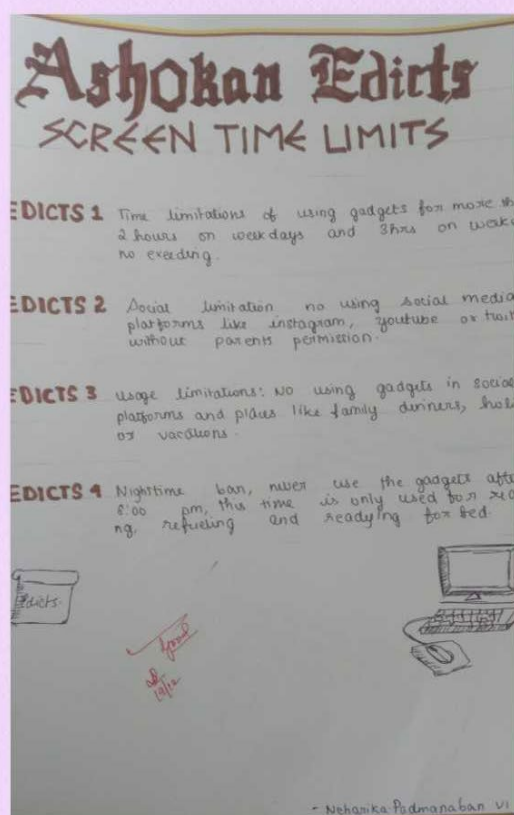 Ashokan Edicts
SCREEN TIME LIMITS
EDICTS 1 Time limitations of using gadgets for more th
2 hours on weekdays and 3hrs on weeke
no exeeding.
EDICTS 2 Social limitation no using social media
platforms like instagram, youtube or twit
without parents permission.
EDICTS 3 usage limitations: No using gadgets in social
platforms and places like family dinners, hol
or vacations.
EDICTS 4 Nighttime ban, never use the gadgets afte
8:00 pm, this time is only used for rea
ng, refueling and readying for bed.
Edicts.
Good
19/12
- Neharika Padmanaban VI